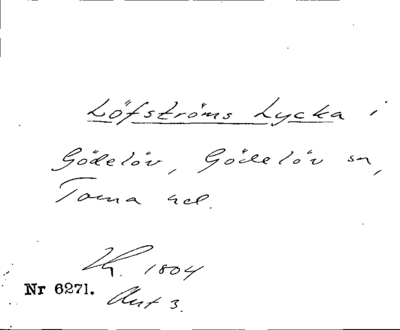 Löfströms Lycka i
Gödelöv, Gödelöv sn,
Torna hd.
1804
Nr 6271. Akt 3.